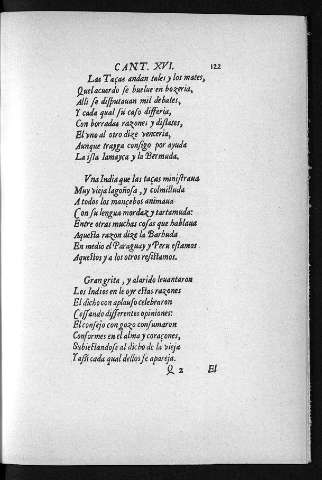 CANT. XVI. 122
Las Taças andan tales y los mates,
Quel acuerdo se buelue en bozeria,
Alli se disputauan mil debates,
Y cada qual su caso differia,
Con borradas razones y dislates,
El vno al otro dize venceria,
Aunque trayga consigo por ayuda
La isla Iamayca y la Bermuda.
Vna India que las taças ministraua
Muy vieja lagañosa, y colmilluda
A todos los mancebos animaua
Con su lengua mordaz y tartamuda:
Entre otras muchas cosas que hablaua
Aquesta razon dize la Barbuda
En medio el Paraguay y Peru estamos
Aquestos y a los otros resistamos.
Gran grita, y alarido leuantaron
Los Indios en le oyr estas razones
El dicho con aplauso celebraron
Cessando differentes opiniones:
El consejo con gozo consumaron
Conformes en el alma y coraçones,
Subiectandose al dicho de la vieja
Y assi cada qual dellos se apareja.
Q 2 El